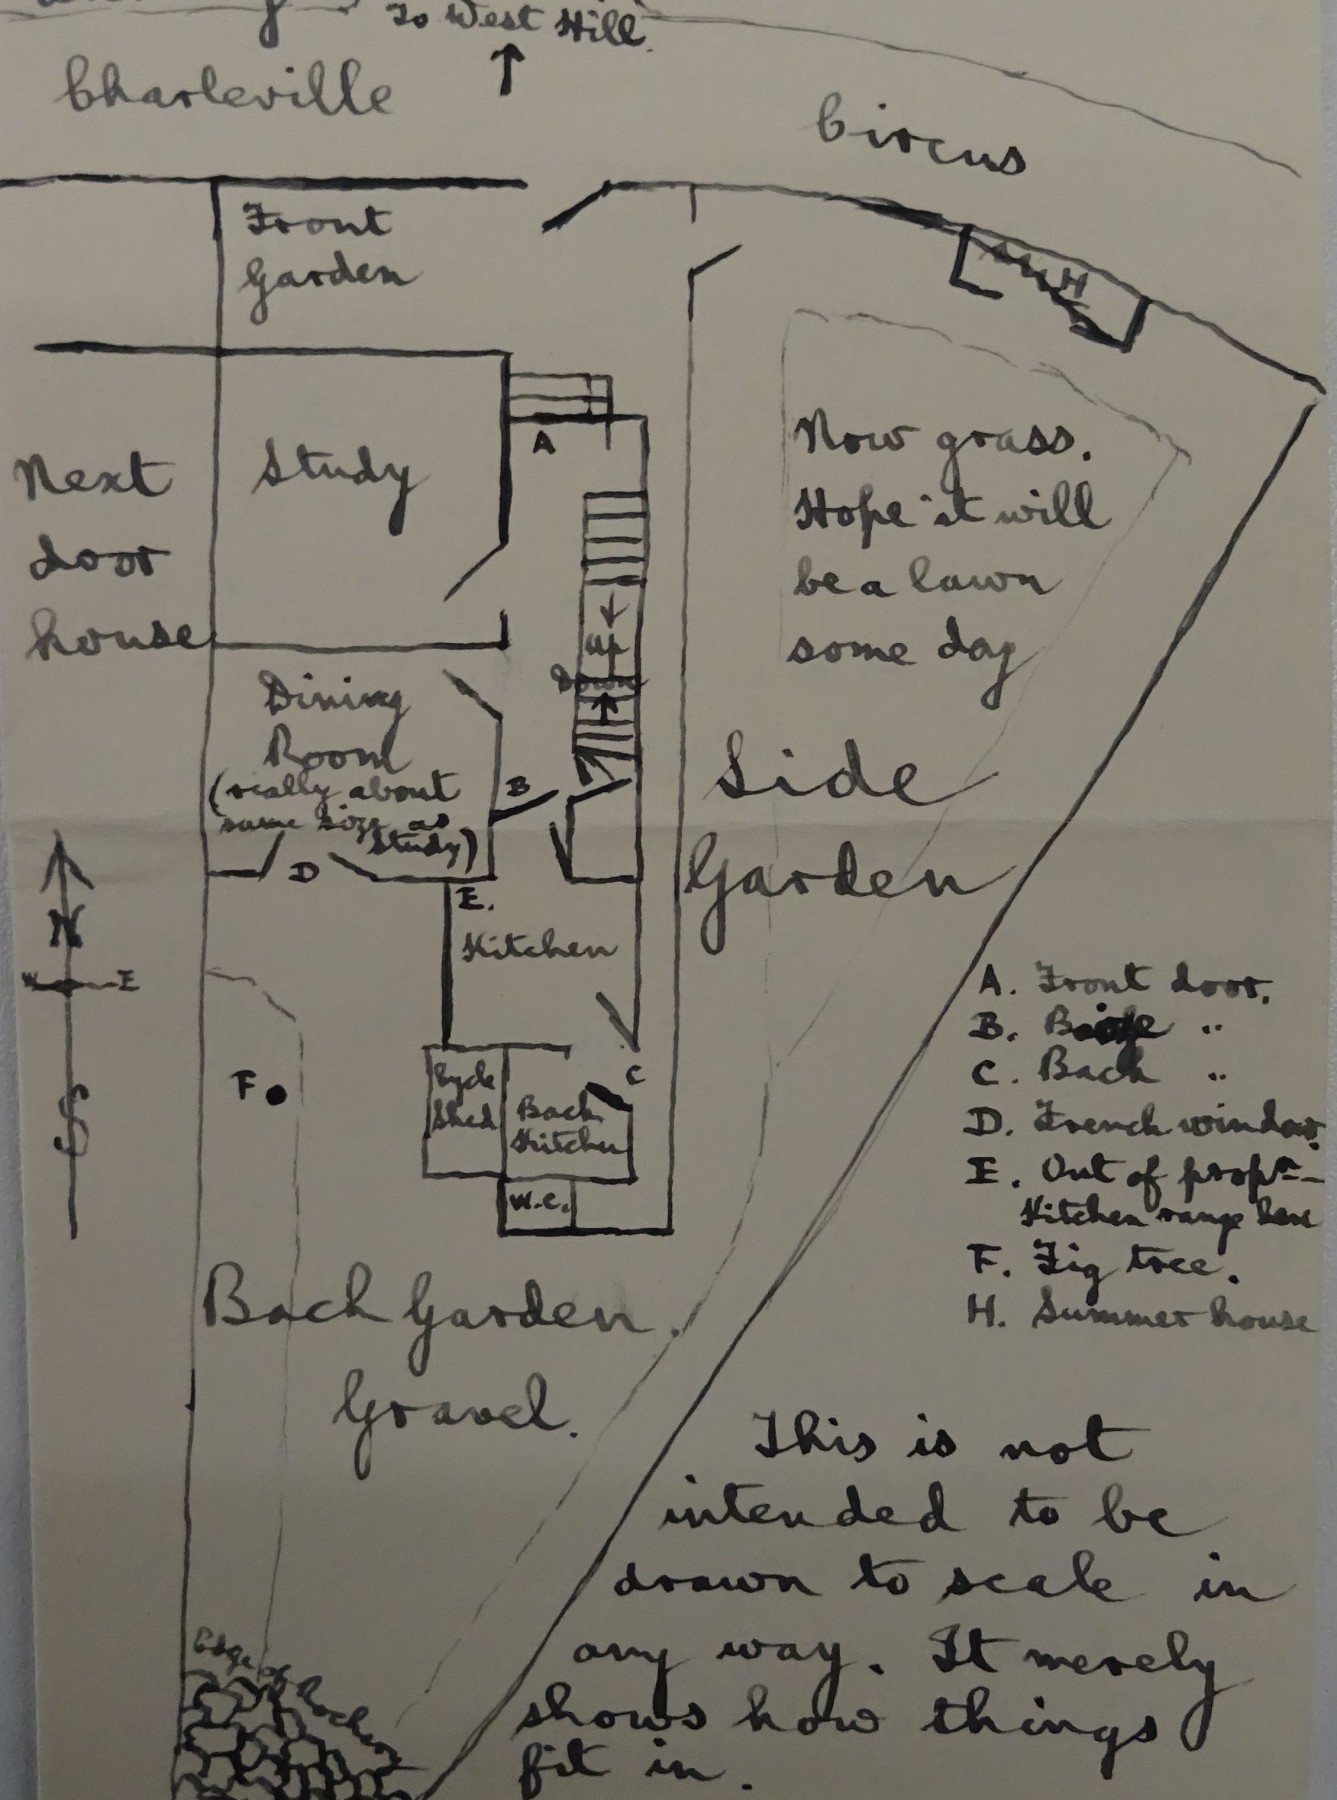 To West Hill.
Charleville
Circus
Front
Garden
H
Study
A
Next
door
house
Now grass.
Hope it will
be a lawn
some day
up
Down
Dining
Room
(really about
same size as
study)
B
D
E.
Side
Garden
Kitchen
N
W E
S
F
Cycle
Shed
Back
Kitchen
C
W.C.
A. Front door.
B. "
C. Back "
D. French window.
E. Out of propn
Kitchen range here
F. Fig tree.
H. Summer house
Back Garden.
Gravel.
Edge of Rock
This is not
intended to be
drawn to scale in
any way. It merely
shows how things
fit in.